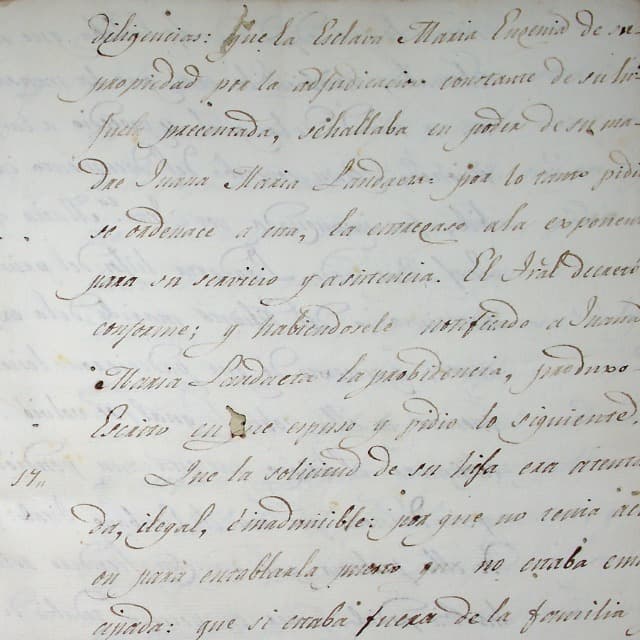 diligencias: que la Esclava Maria Eugenia de su
propiedad por la adjudicacion constante de su hi
juela precentada, se hallaba en poder de su ma-
dre Juana Maria Landaeta: por lo tanto pidio
se ordenace a esta, la entregase a la exponen
para su servicio y asistencia. El Tral decreto
conforme; y habiendosele notificado a Juana
Maria Landaeta la probidencia, produxo
Escrito en que espuso y pidio lo siguiente,
17,, Que la solicitud de su hija era atenta
da, ilegal, é inadmicible: por que no tenia acci
on para entablarla puesto que no estaba eman
cipada: que si estaba fuera de la familia